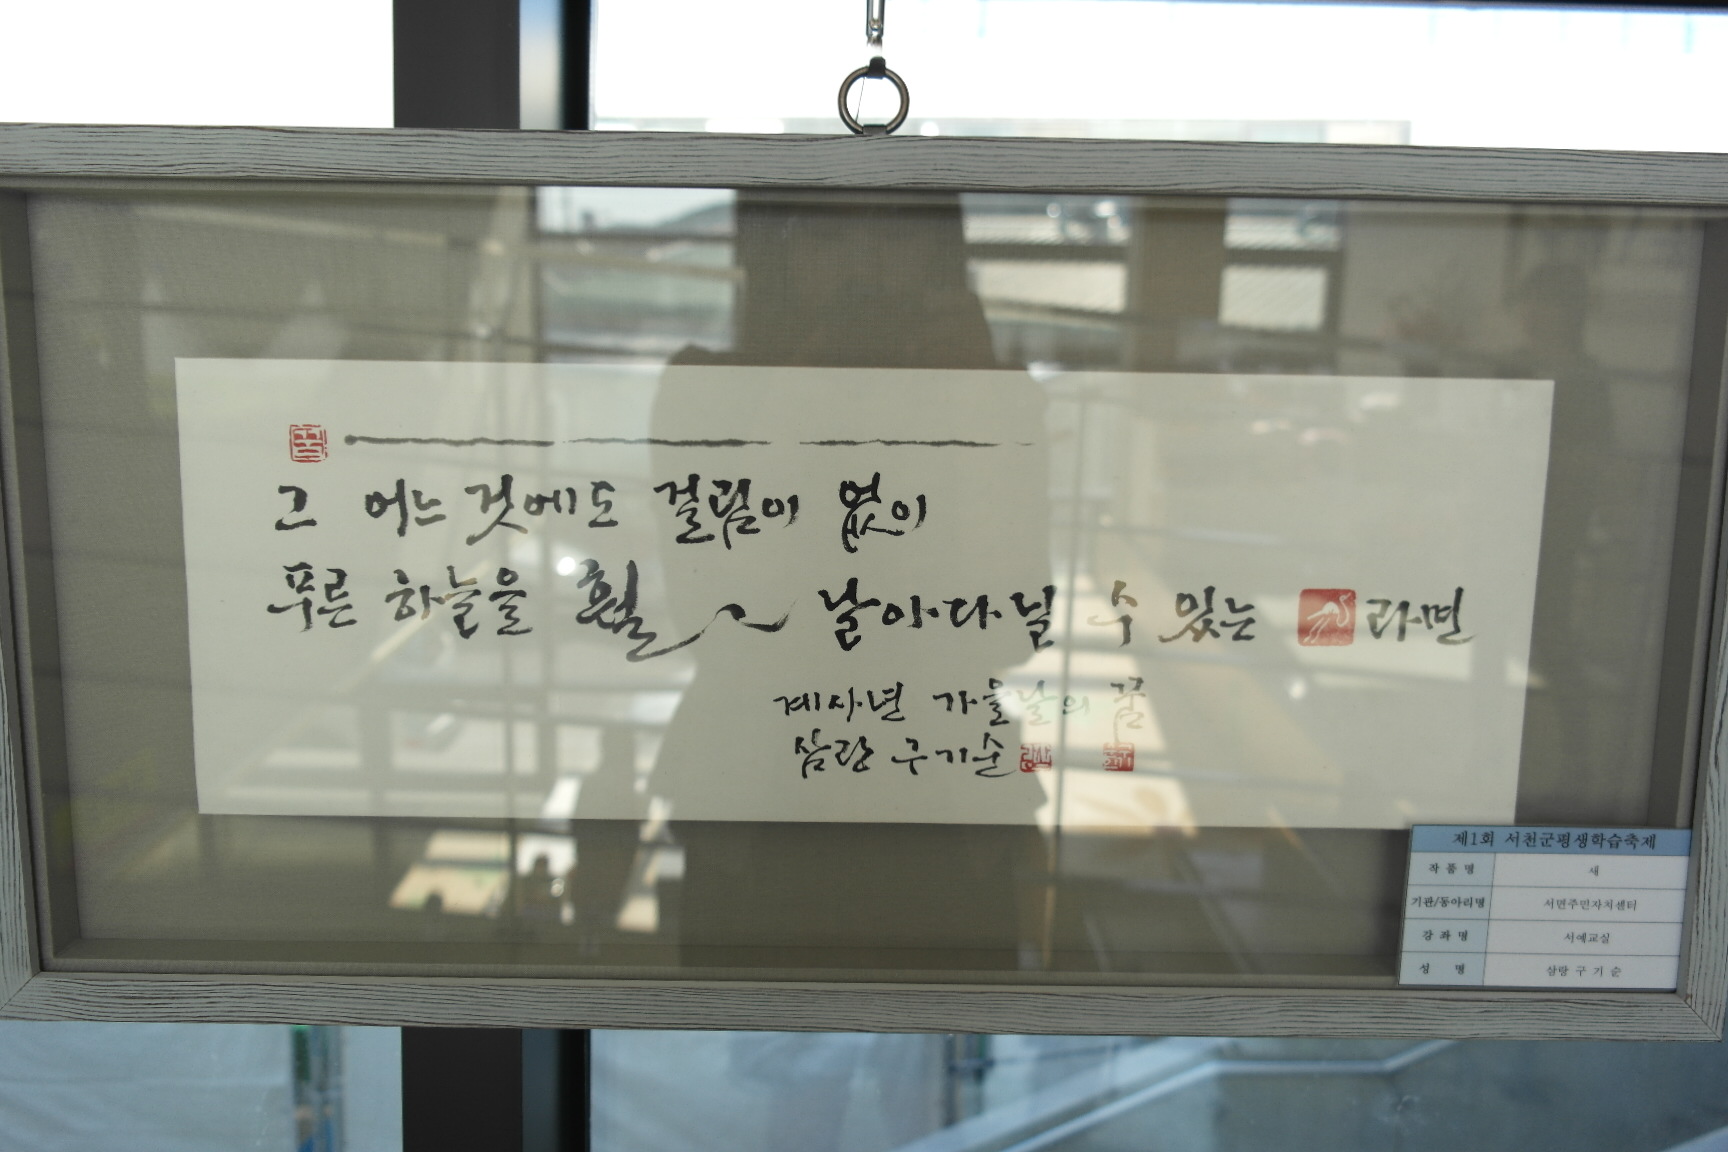 그 어느 것에도 걸림이 없이
푸른 하늘을 훨~ 날아다닐 수 있는 라면
계사년 가을날의 꿈
삼랑 구기순
제1회 서천군평생학습축제
작품명 새
기관/동아리명 서면주민자치센터
강좌명 서예교실
성 명 삼랑 구 기 순